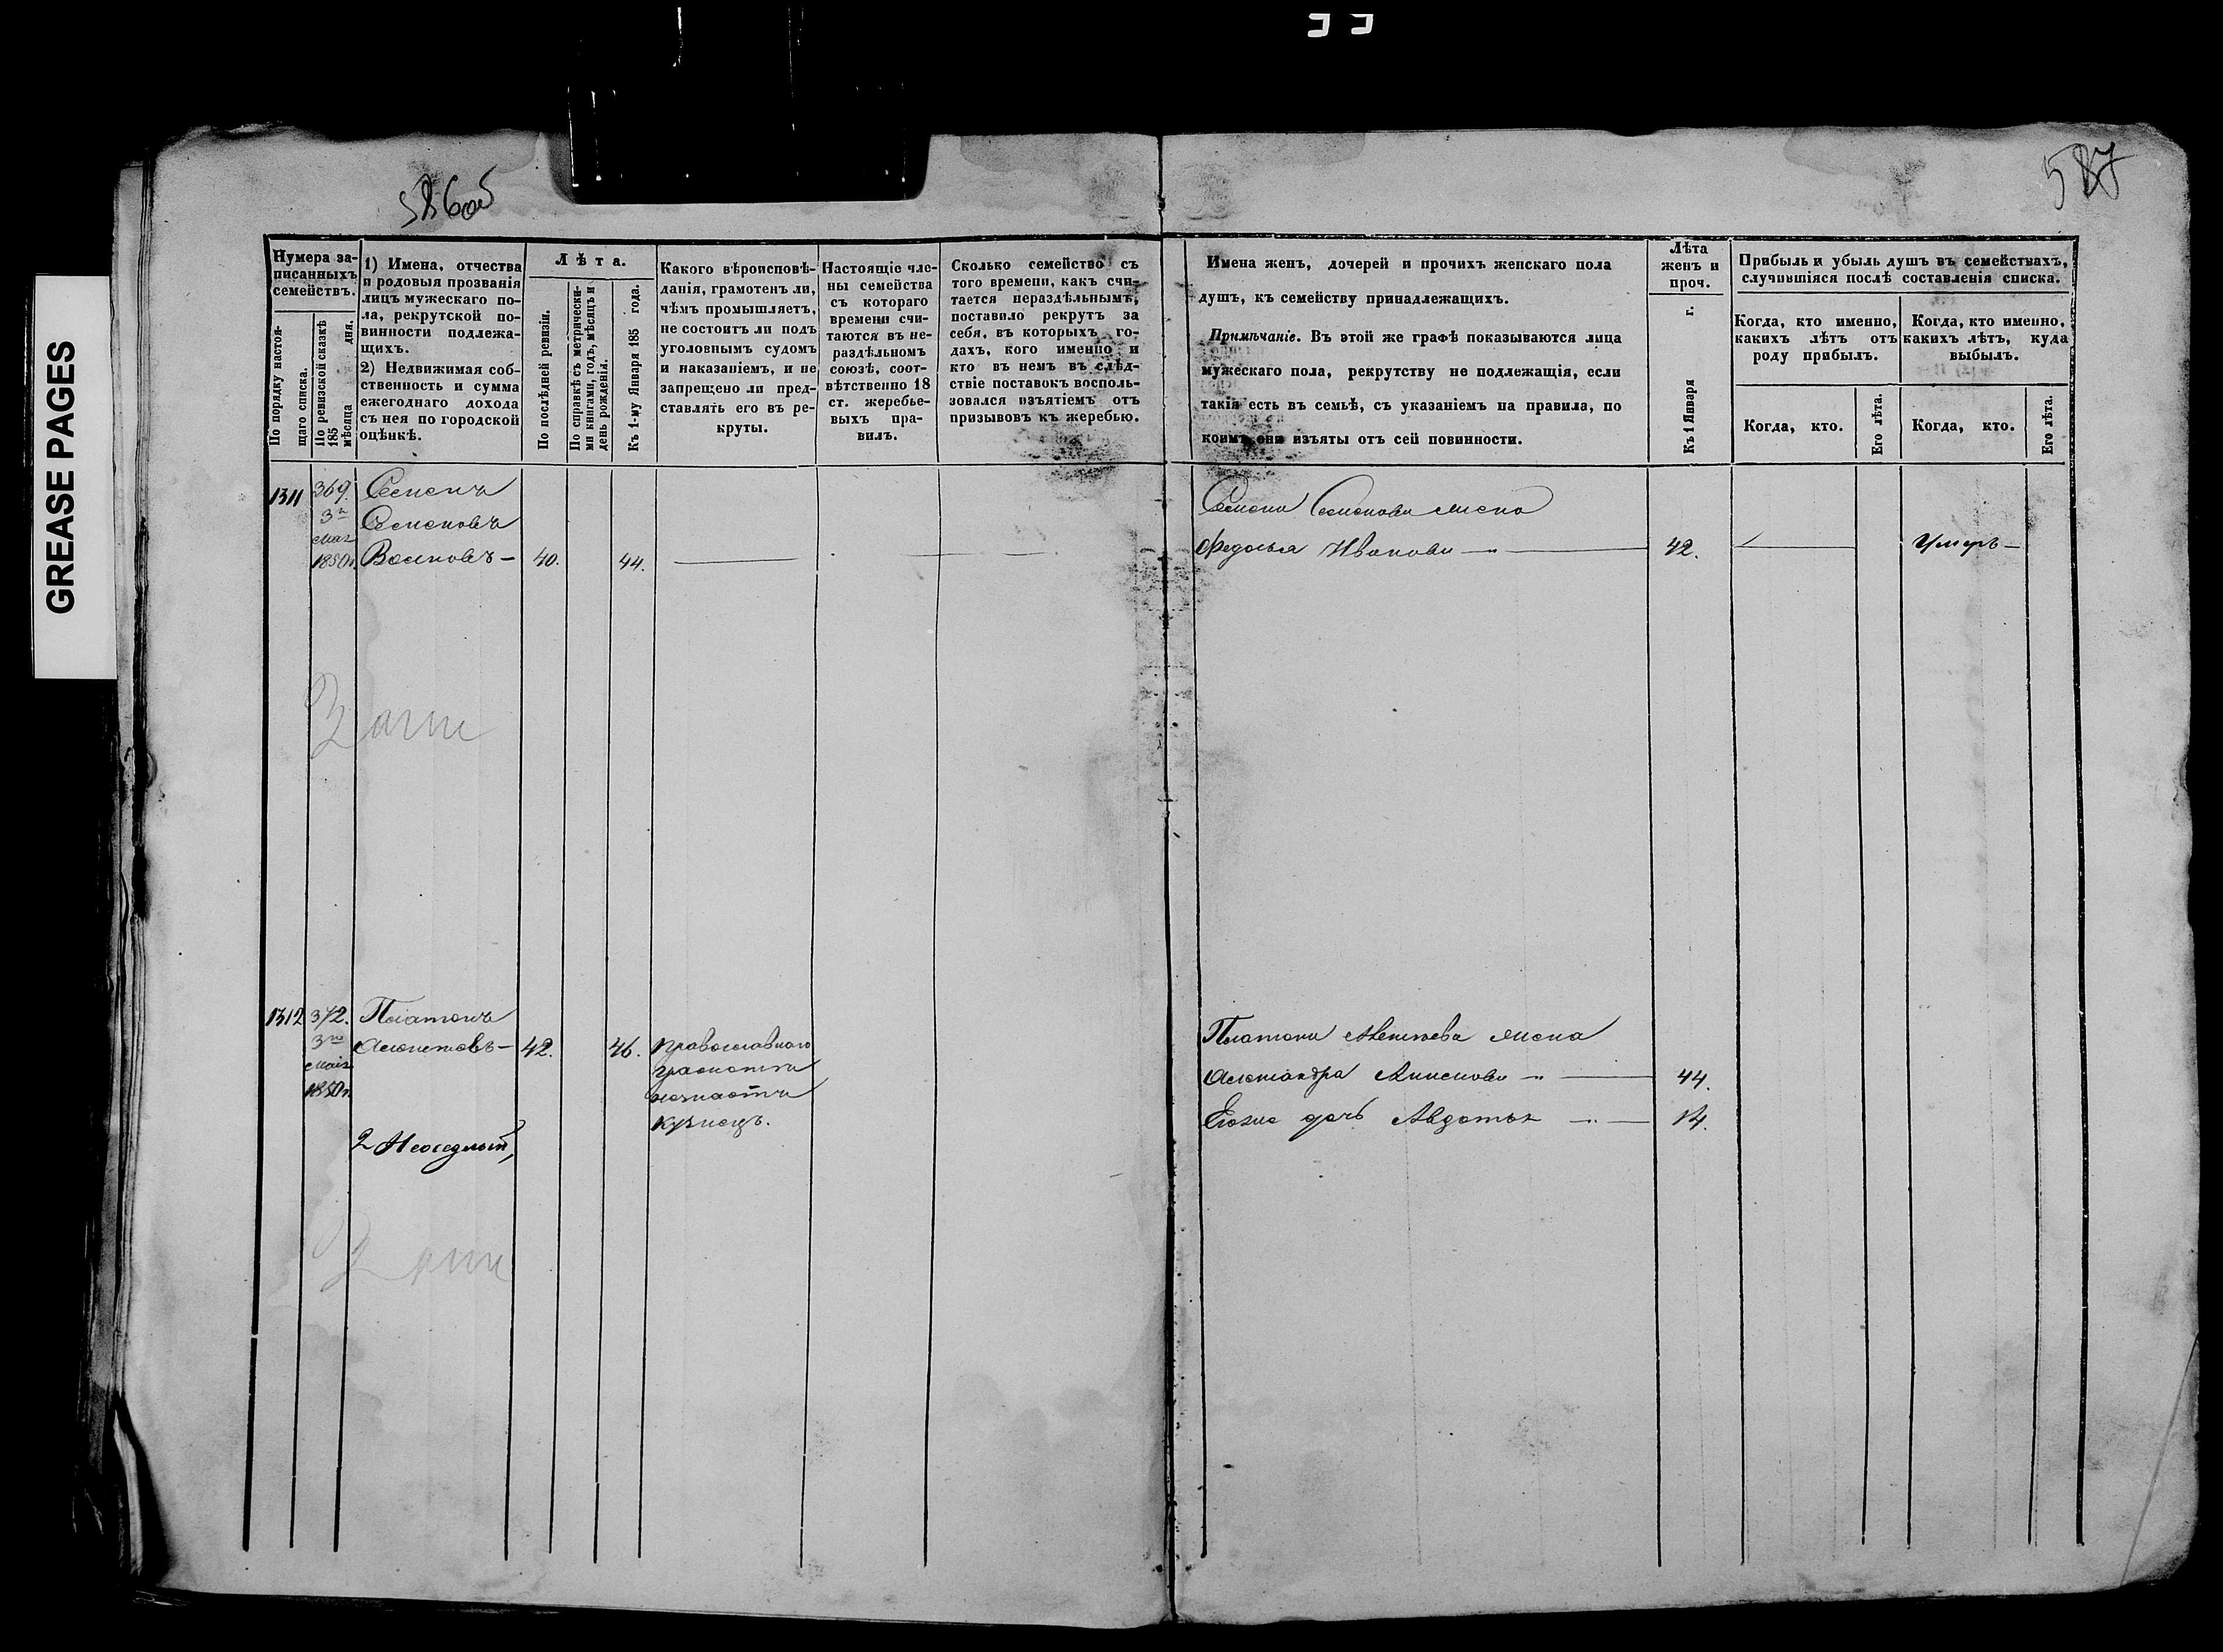 GREASE PAGES
586об
587
Нумера записанныхъ семействъ.
По порядку настоящаго списка.
По ревизской сказкѣ 185 мѣсяца дня.
1) Имена, отчества
и родовыя прозванія
лицъ мужескаго по-
ла, рекрутской по-
винности подлежа-
щихъ.
2) Недвижимая соб-
ственность и сумма
ежегоднаго дохода
съ нея по городской
оцѣнкѣ.
Лѣта.
По послѣдней ревизіи.
По справкѣ съ метрически-
ми книгами, годъ, мѣсяцъ и
день рожденія.
Къ 1-му Января 185 года.
Какого вѣроисповѣ-
данія, грамотенъ ли,
чѣмъ промышляетъ,
не состоитъ ли подъ
уголовнымъ судомъ
и наказаніемъ, и не
запрещено ли пред-
ставлять его въ ре-
круты.
Настоящіе чле-
ны семейства
съ котораго
времени счи-
таются въ не-
раздѣльномъ
союзѣ, соот-
вѣтственно 18
ст. жеребье-
выхъ пра-
вилъ.
Сколько семейство съ
того времени, какъ счи-
тается нераздѣльнымъ,
поставило рекрутъ за
себя, въ которыхъ го-
дахъ, кого именно и
кто въ немъ въ слѣд-
ствіе поставокъ восполь-
зовался изъятіемъ отъ
призывовъ къ жеребью.
Имена женъ, дочерей и прочихъ женскаго пола
душъ, къ семейству принадлежащихъ.
Примѣчаніе. Въ этой же графѣ показываются лица
мужескаго пола, рекрутству не подлежащія, если
такія есть въ семьѣ, съ указаніемъ на правила, по
коимъ они изъяты отъ сей повинности.
Лѣта
женъ и
проч.
Къ 1 Января г.
Прибыль и убыль душъ въ семействахъ,
случившіяся послѣ составленія списка.
Когда, кто именно,
какихъ лѣтъ отъ
роду прибылъ.
Когда, кто именно,
какихъ лѣтъ, куда
выбылъ.
Когда, кто.
Его лѣта.
Когда, кто.
Его лѣта.
1311 369. Семенъ
3го Семеновъ
мая
1850г. Воиновъ — 40. 44.
Семена Семенова жена
Федосья Иванова — 42. Умеръ —
1312 372. Платонъ
3го 42. 46. православнаго
мая грамотѣ
1850г. незнаетъ
кузнецъ.
2 Неоседлый,
Платона жена
Александра — 44.
дочь Авдотья — 14.